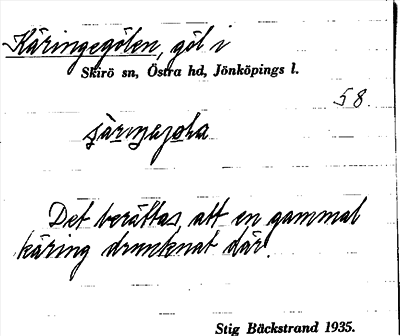 Käringegölen, göl i
Skirö sn, Östra hd, Jönköpings l.
58.
Det berättas, att en gammal
käring drunknat där.
Stig Bäckstrand 1935.